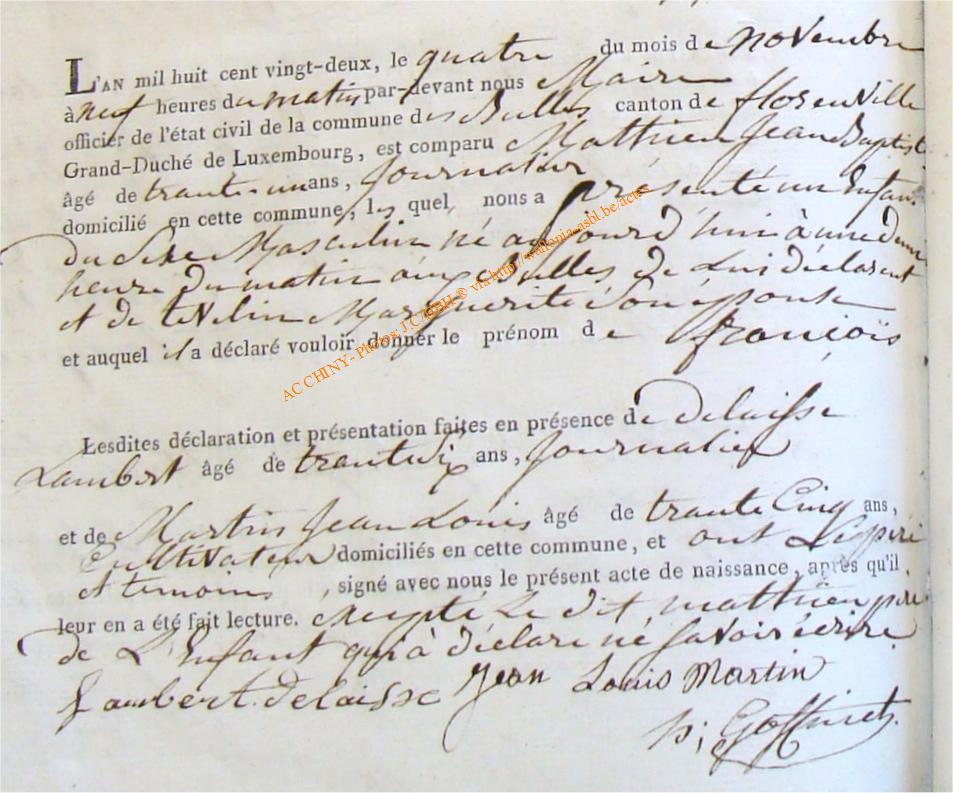 L'AN mil huit cent vingt-deux, le quatre du mois de novembre
à neuf heures du matin par-devant nous Maire
officier de l'état civil de la commune des Bulles canton de florenville
Grand-Duché de Luxembourg, est comparu Mathieu Jean Baptist
âgé de trante-un ans, Journalier
domicilié en cette commune, lequel nous a présenté un Enfant
du sexe Masculin né aujourd'hui à une demi
heure du matin aux Bulles de Lui déclarent
et de tevelin Marguerite son épouse
et auquel il a déclaré vouloir donner le prénom de françois
AC CHINY - Photos J CAREH ® via http://wallonia-asbl.be/actes
Lesdites déclaration et présentation faites en présence de delaisse
Lambert âgé de trante dix ans, Journalier
et de Martin Jean Louis âgé de trante Cinq ans,
Cultivateur domiciliés en cette commune, et ont Le père
et temoins, signé avec nous le présent acte de naissance, après qu'il
leur en a été fait lecture. excepté Le dit mathieu père
de L'Enfant qui à déclaré né savoir écrire
Lambert Delaisse Jean Louis Martin
Goffinet